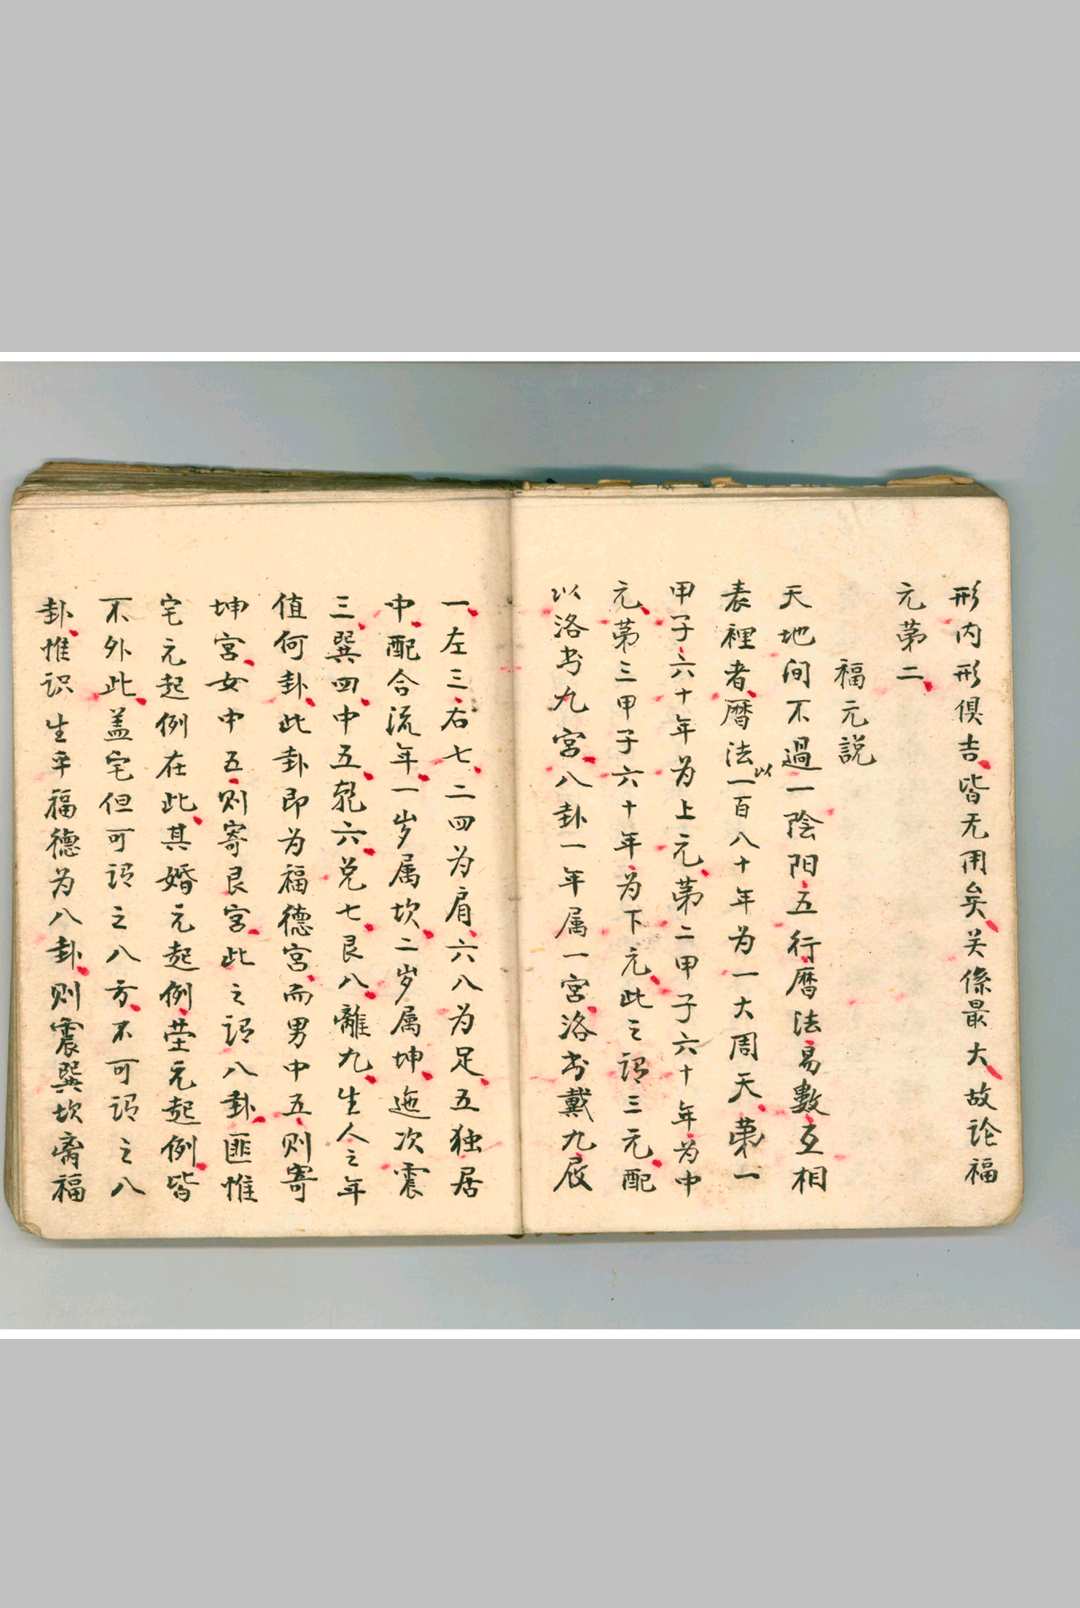 形内形俱吉、皆无用矣、关係最大、故论福
元第二、
福元説
天地间不過一陰阳五行、暦法易數互相
表裡者、暦法以一百八十年为一大周天、第一
甲子六十年为上元、第二甲子六十年为中
元、第三甲子六十年为下元、此之謂三元、配
以洛书九宮、八卦一年属一宮、洛书戴九履
一、左三、右七、二四为肩、六八为足、五独居
中、配合流年、一岁属坎、二岁属坤、迤次震
三、巽四、中五、乾六、兑七、艮八、離九、生人之年
值何卦、此卦即为福德宮、而男中五、则寄
坤宮、女中五、则寄艮宮、此之謂八卦、匪惟
宅元起例在此、其婚元起例、茔元起例、皆
不外此、盖宅但可謂之八方、不可謂之八
卦、惟识生平福德为八卦、则震巽坎离福